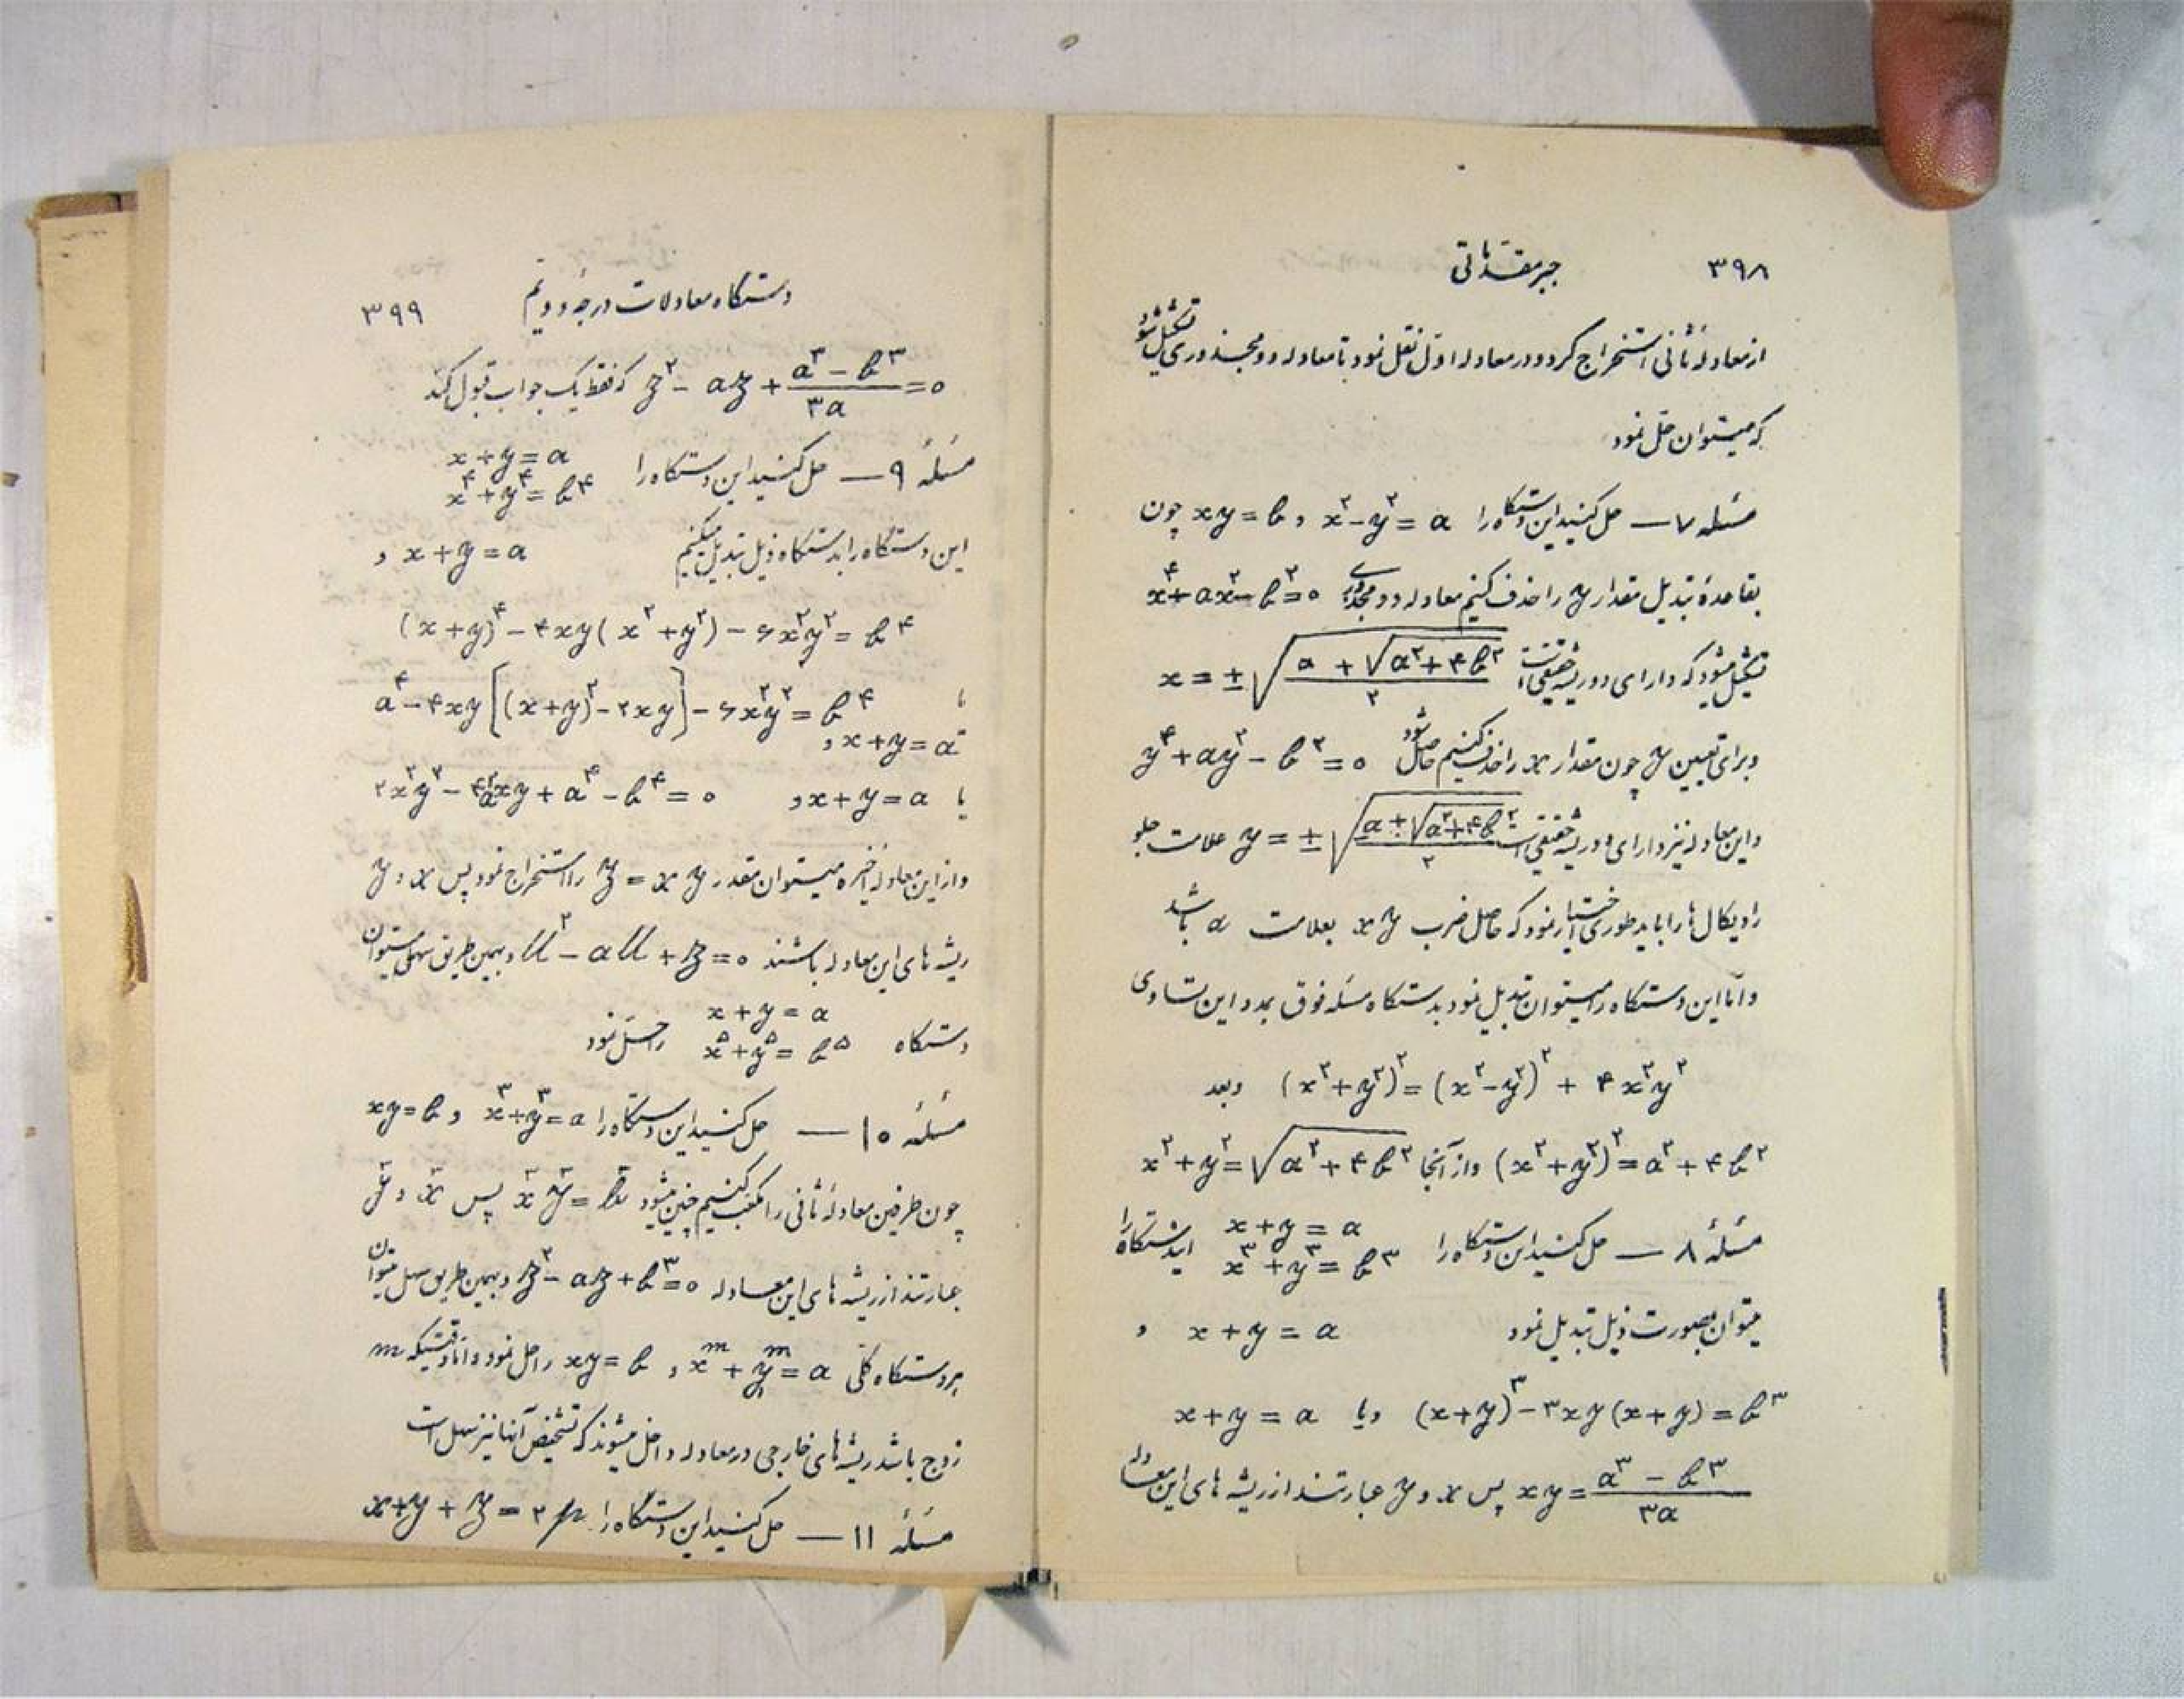 ۳۹۸ جبر مقدماتی
از معادلهٔ ثانی استخراج کرد و در معادله اوّل نقل نمود تا معادله دو مجذوری تشکیل شود
که میتوان حل نمود
مسئله ۷ — حل کنید این دستگاه را x²-y²=a و xy=b چون
بقاعدهٔ تبدیل مقدار y را حذف کنیم معادله دو مجذوری x⁴+ax²-b²=۰
تشکیل میشود که دارای دو ریشه حقیقی است x=±√((a+√(a²+۴b²))/۲)
و برای تعیین y چون مقدار x را حذف کنیم حاصل شود y⁴+ay²-b²=۰
و این معادله نیز دارای دو ریشه حقیقی است y=±√((a±√(a²+۴b²))/۲) علامت جلو
رادیکال ها را باید طوری اختیار نمود که حاصل ضرب xy بعلامت a باشد
و امّا این دستگاه را میتوان تبدیل نمود بدستگاه مسئله فوق بمدد این تساوی
(x²+y²)²=(x²-y²)²+۴x²y² و بعد
(x²+y²)²=a²+۴b² و از آنجا x²+y²=√(a²+۴b²)
مسئلهٔ ۸ — حل کنید این دستگاه را x+y=a x³+y³=b³ ایندستگاه را
میتوان بصورت ذیل تبدیل نمود x+y=a و
(x+y)³-۳xy(x+y)=b³ و یا x+y=a
xy=(a³-b³)/۳a پس x و y عبارتند از ریشه های این معادله
دستگاه معادلات درجهٔ دویم ۳۹۹
z²-az+(a³-b³)/۳a=۰ که فقط یک جواب قبول کند
مسئلهٔ ۹ — حل کنید این دستگاه را x+y=a x⁴+y⁴=b⁴
این دستگاه را بدستگاه ذیل تبدیل میکنیم x+y=a و
(x+y)⁴-۴xy(x²+y²)-۶x²y²=b⁴
یا a⁴-۴xy[(x+y)²-۲xy]-۶x²y²=b⁴
و x+y=a
یا x+y=a و ۲x²y²-۴a²xy+a⁴-b⁴=۰
و از این معادلهٔ اخیره میتوان مقدر xy=z را استخراج نمود پس x و y
ریشه های این معادله باشند u²-au+z=۰ و بهمین طریق سهلی میتوان
دستگاه x+y=a x⁵+y⁵=b⁵ را حل نمود
مسئلهٔ ۱۰ — حل کنید این دستگاه را x³+y³=a و xy=b
چون طرفین معادلهٔ ثانی را مکعب کنیم چنین میشود x³y³=b³ پس x³ و y³
عبارتند از ریشه های این معادله z²-az+b³=۰ و بهمین طریق سهل میتوان
هر دستگاه کلّی xᵐ+yᵐ=a و xy=b را حل نمود و امّا وقتیکه m
زوج باشد ریشه های خارجی در معادله داخل میشوند که تشخیص آنها نیز سهل است
مسئلهٔ ۱۱ — حل کنید این دستگاه را x+y+z=۲p